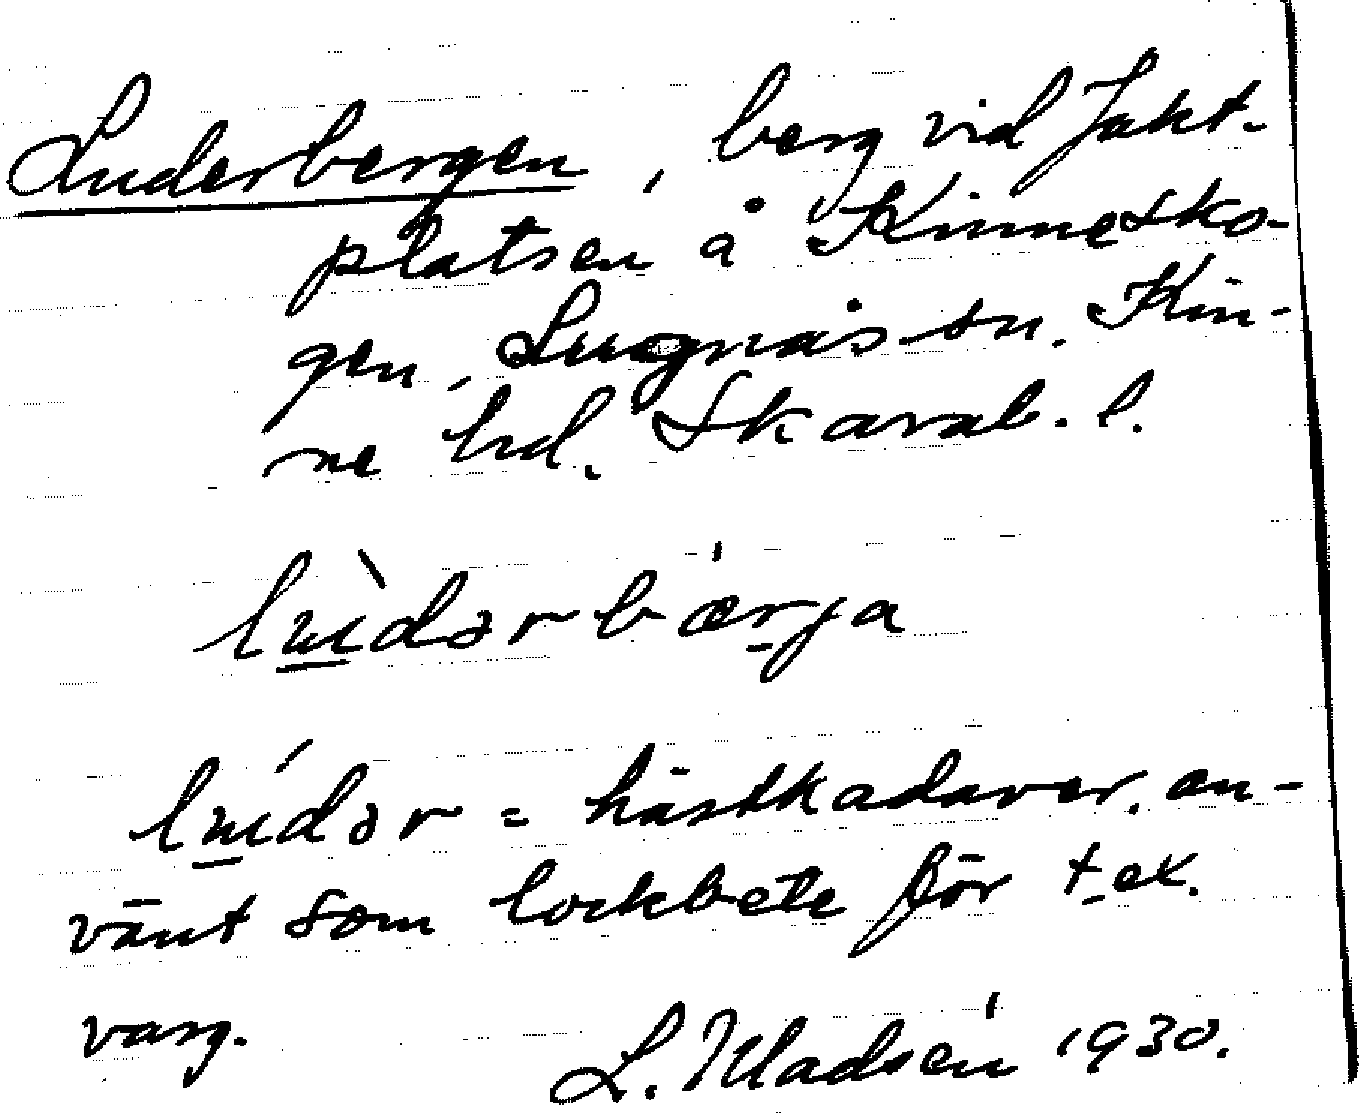 Luderbergen, berg vid Jakt-
platsen å Kinnesko-
gen, Lugnås sn. Kin-
ne hd. Skarab. l.
lùdərbærja
lúdər = hästkadaver, an-
vänt som lockbete för t.ex.
varg.
L. Madsén 1930.